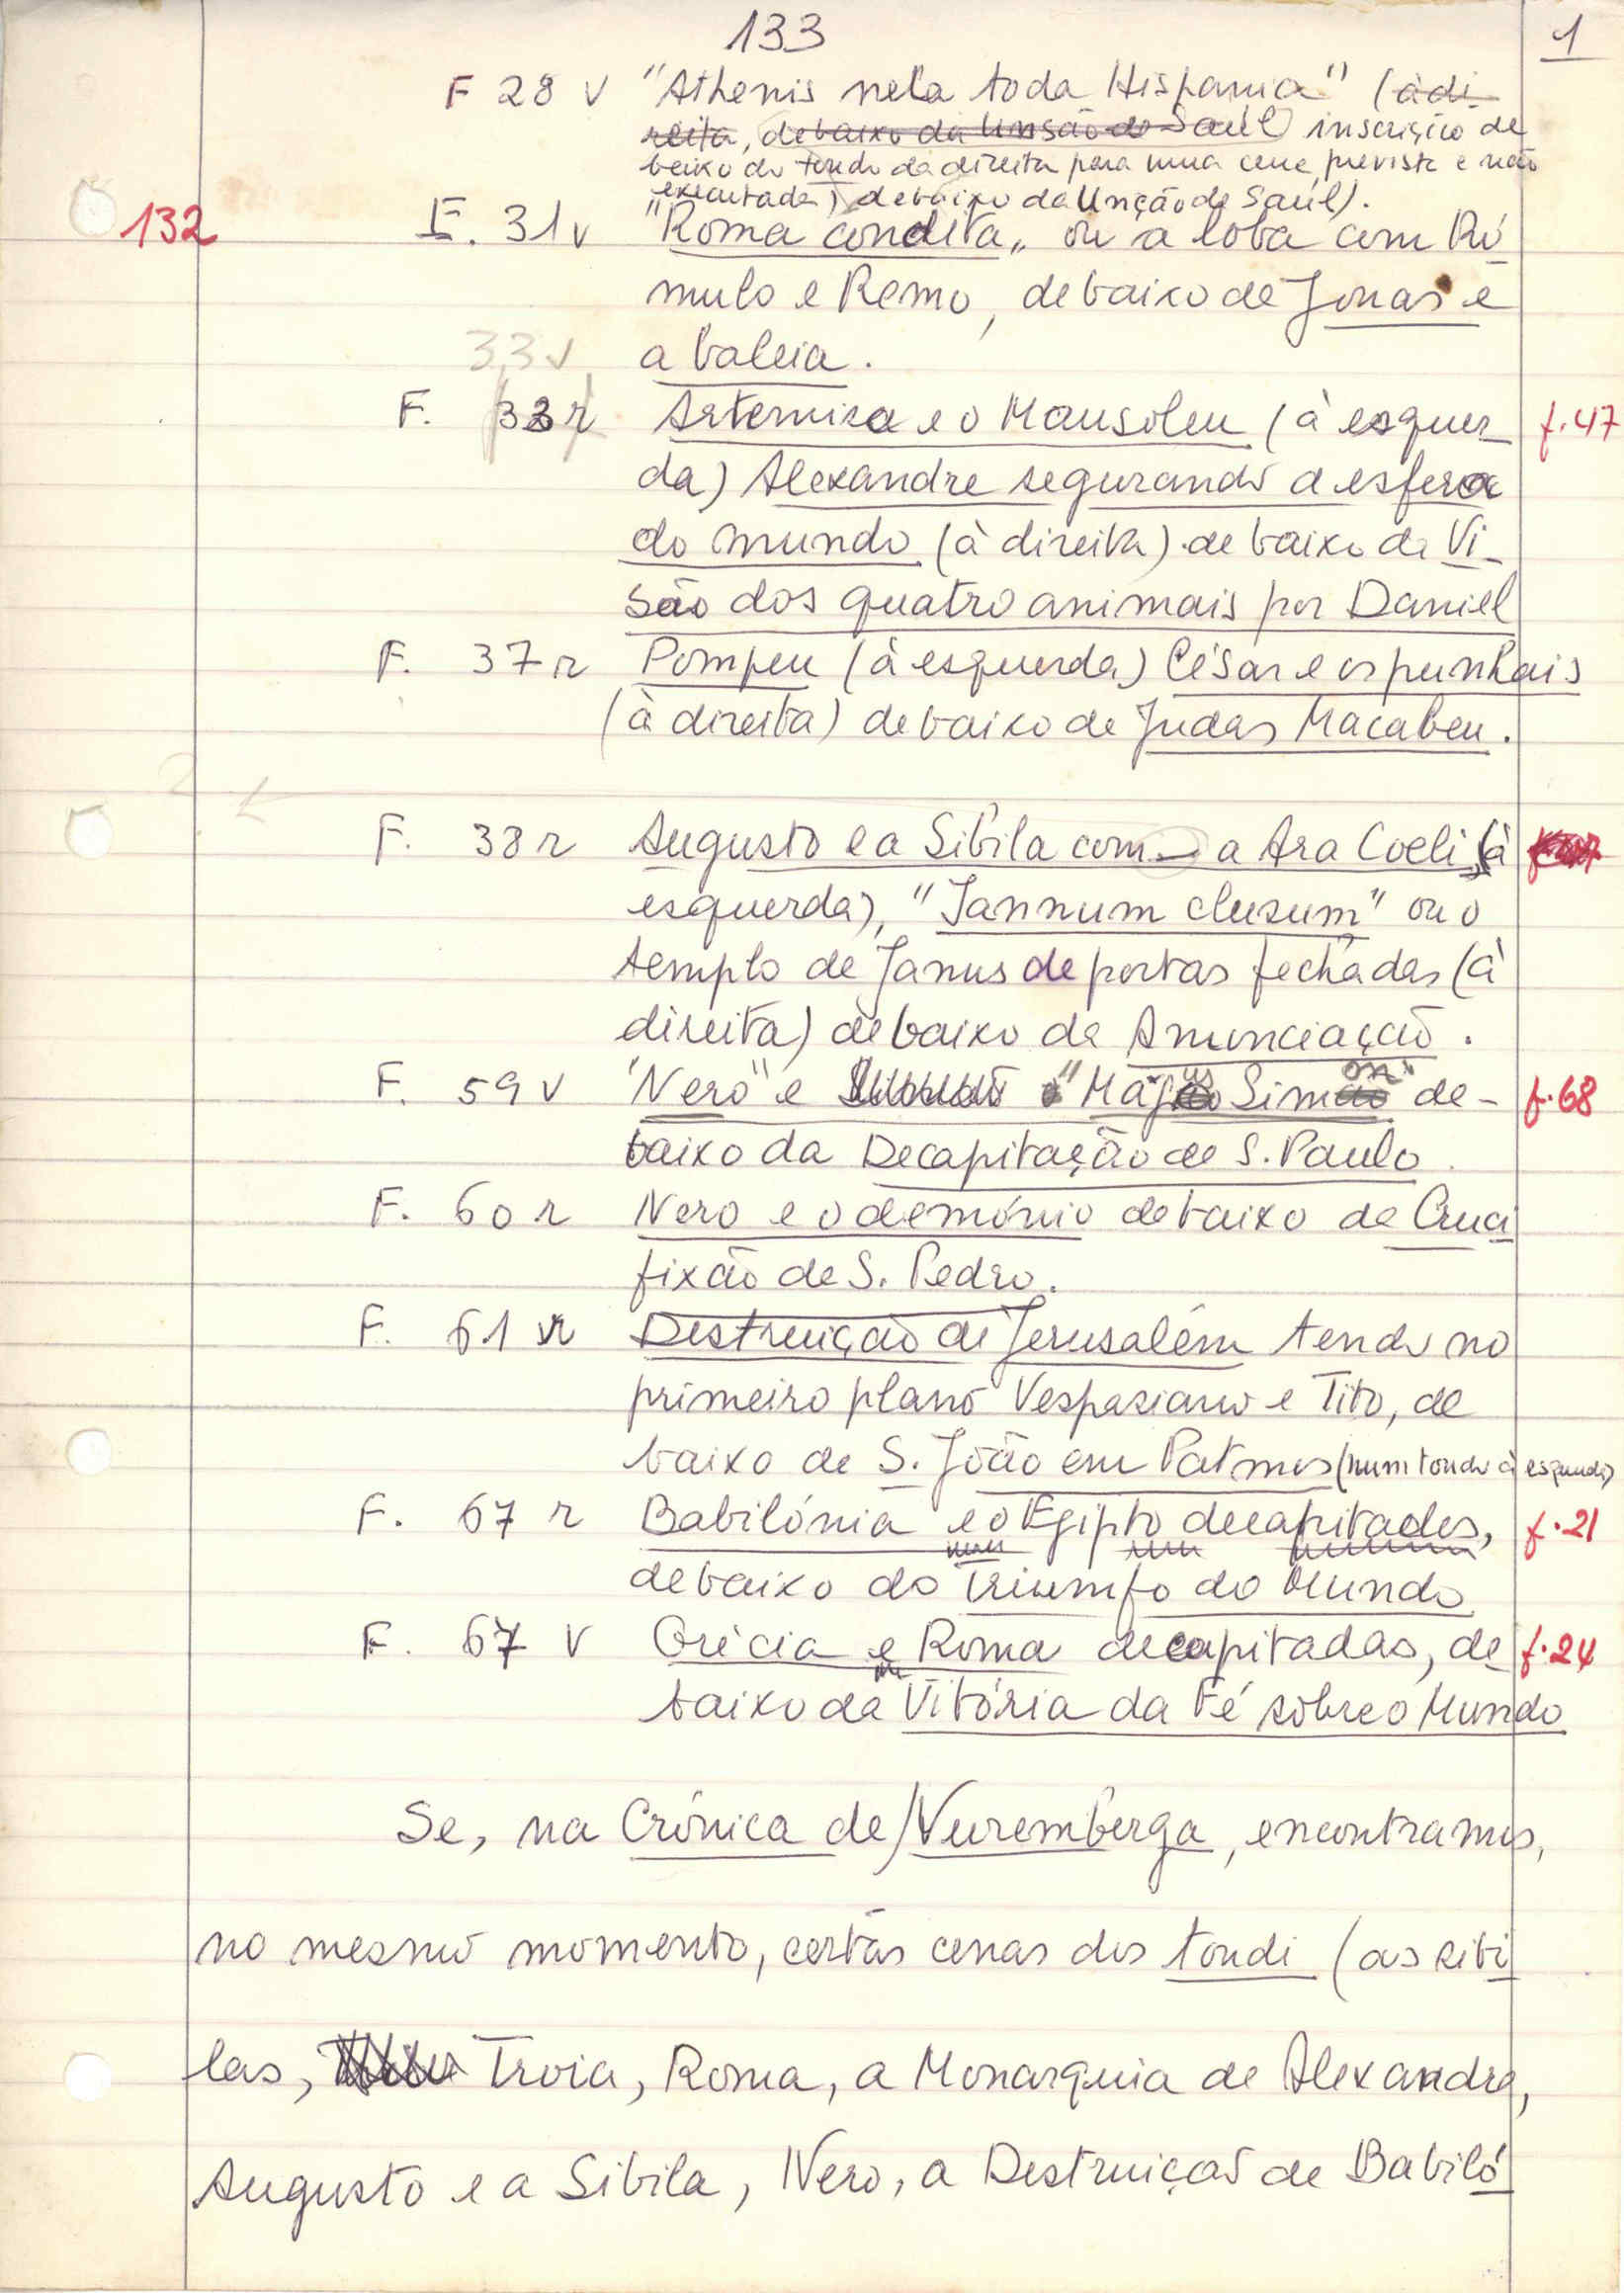 133
1
F 28 v "Athenis nela toda Hispania" (à di
reita, debaixo da Unsão de Saúl) inscrição de
baixo do tondo da direita para uma cena prevista e não
executada) debaixo da Unção de Saúl).
132 F. 31v "Roma condita" ou a loba com Ró
mulo e Remo, debaixo de Jonas e
33v a baleia.
F. 33r Artemisa e o Mausoleu (à esquer f. 47
da) Alexandre segurando a esfera
do mundo (à direita) debaixo da Vi-
são dos quatro animais por Daniel
F. 37r Pompeu (à esquerda) César e os punhais
(à direita) debaixo de Judas Macabeu.
F. 38r Augusto e a Sibila com a Ara Coeli (à
esquerda), "Jannum clusum" ou o
templo de Janus de portas fechadas (à
direita) debaixo da Anunciação.
F. 59v "Nero" e "Magus Simon" de- f. 68
baixo da Decapitação de S. Paulo
F. 60r Nero e o demónio debaixo da Cruci
fixão de S. Pedro.
F. 61r Destruição de Jerusalém tendo no
primeiro plano Vespasiano e Tito, de
baixo de S. João em Patmos (num tondo à esquerda)
F. 67r Babilónia e o Egipto decapitados, f. 21
debaixo do Triumfo do Mundo
F. 67v Grécia e Roma decapitadas, de f. 24
baixo da Vitória da Fé sobre o Mundo
Se, na Crónica de Nuremberga, encontramos,
no mesmo momento, certas cenas dos tondi (as sibi
las, Troia, Roma, a Monarquia de Alexandre,
Augusto e a Sibila, Nero, a Destruição de Babiló